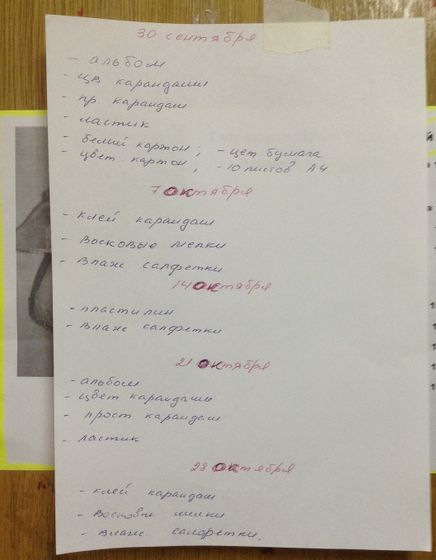 30 сентября
- альбом
- цв карандаши
- пр. карандаш
- ластик
- белый картон; - цет. бумага
- цвет. картон; - 10 листов А4
7 октября
- клей карандаш
- восковые мелки
- Влаж салфетки
14 октября
- пластилин
- Влаж салфетки
21 октября
- альбом
- цвет карандаши
- прост. карандаш
- ластик
28 октября
- клей карандаш
- восковые мелки
- Влаж салфетки.